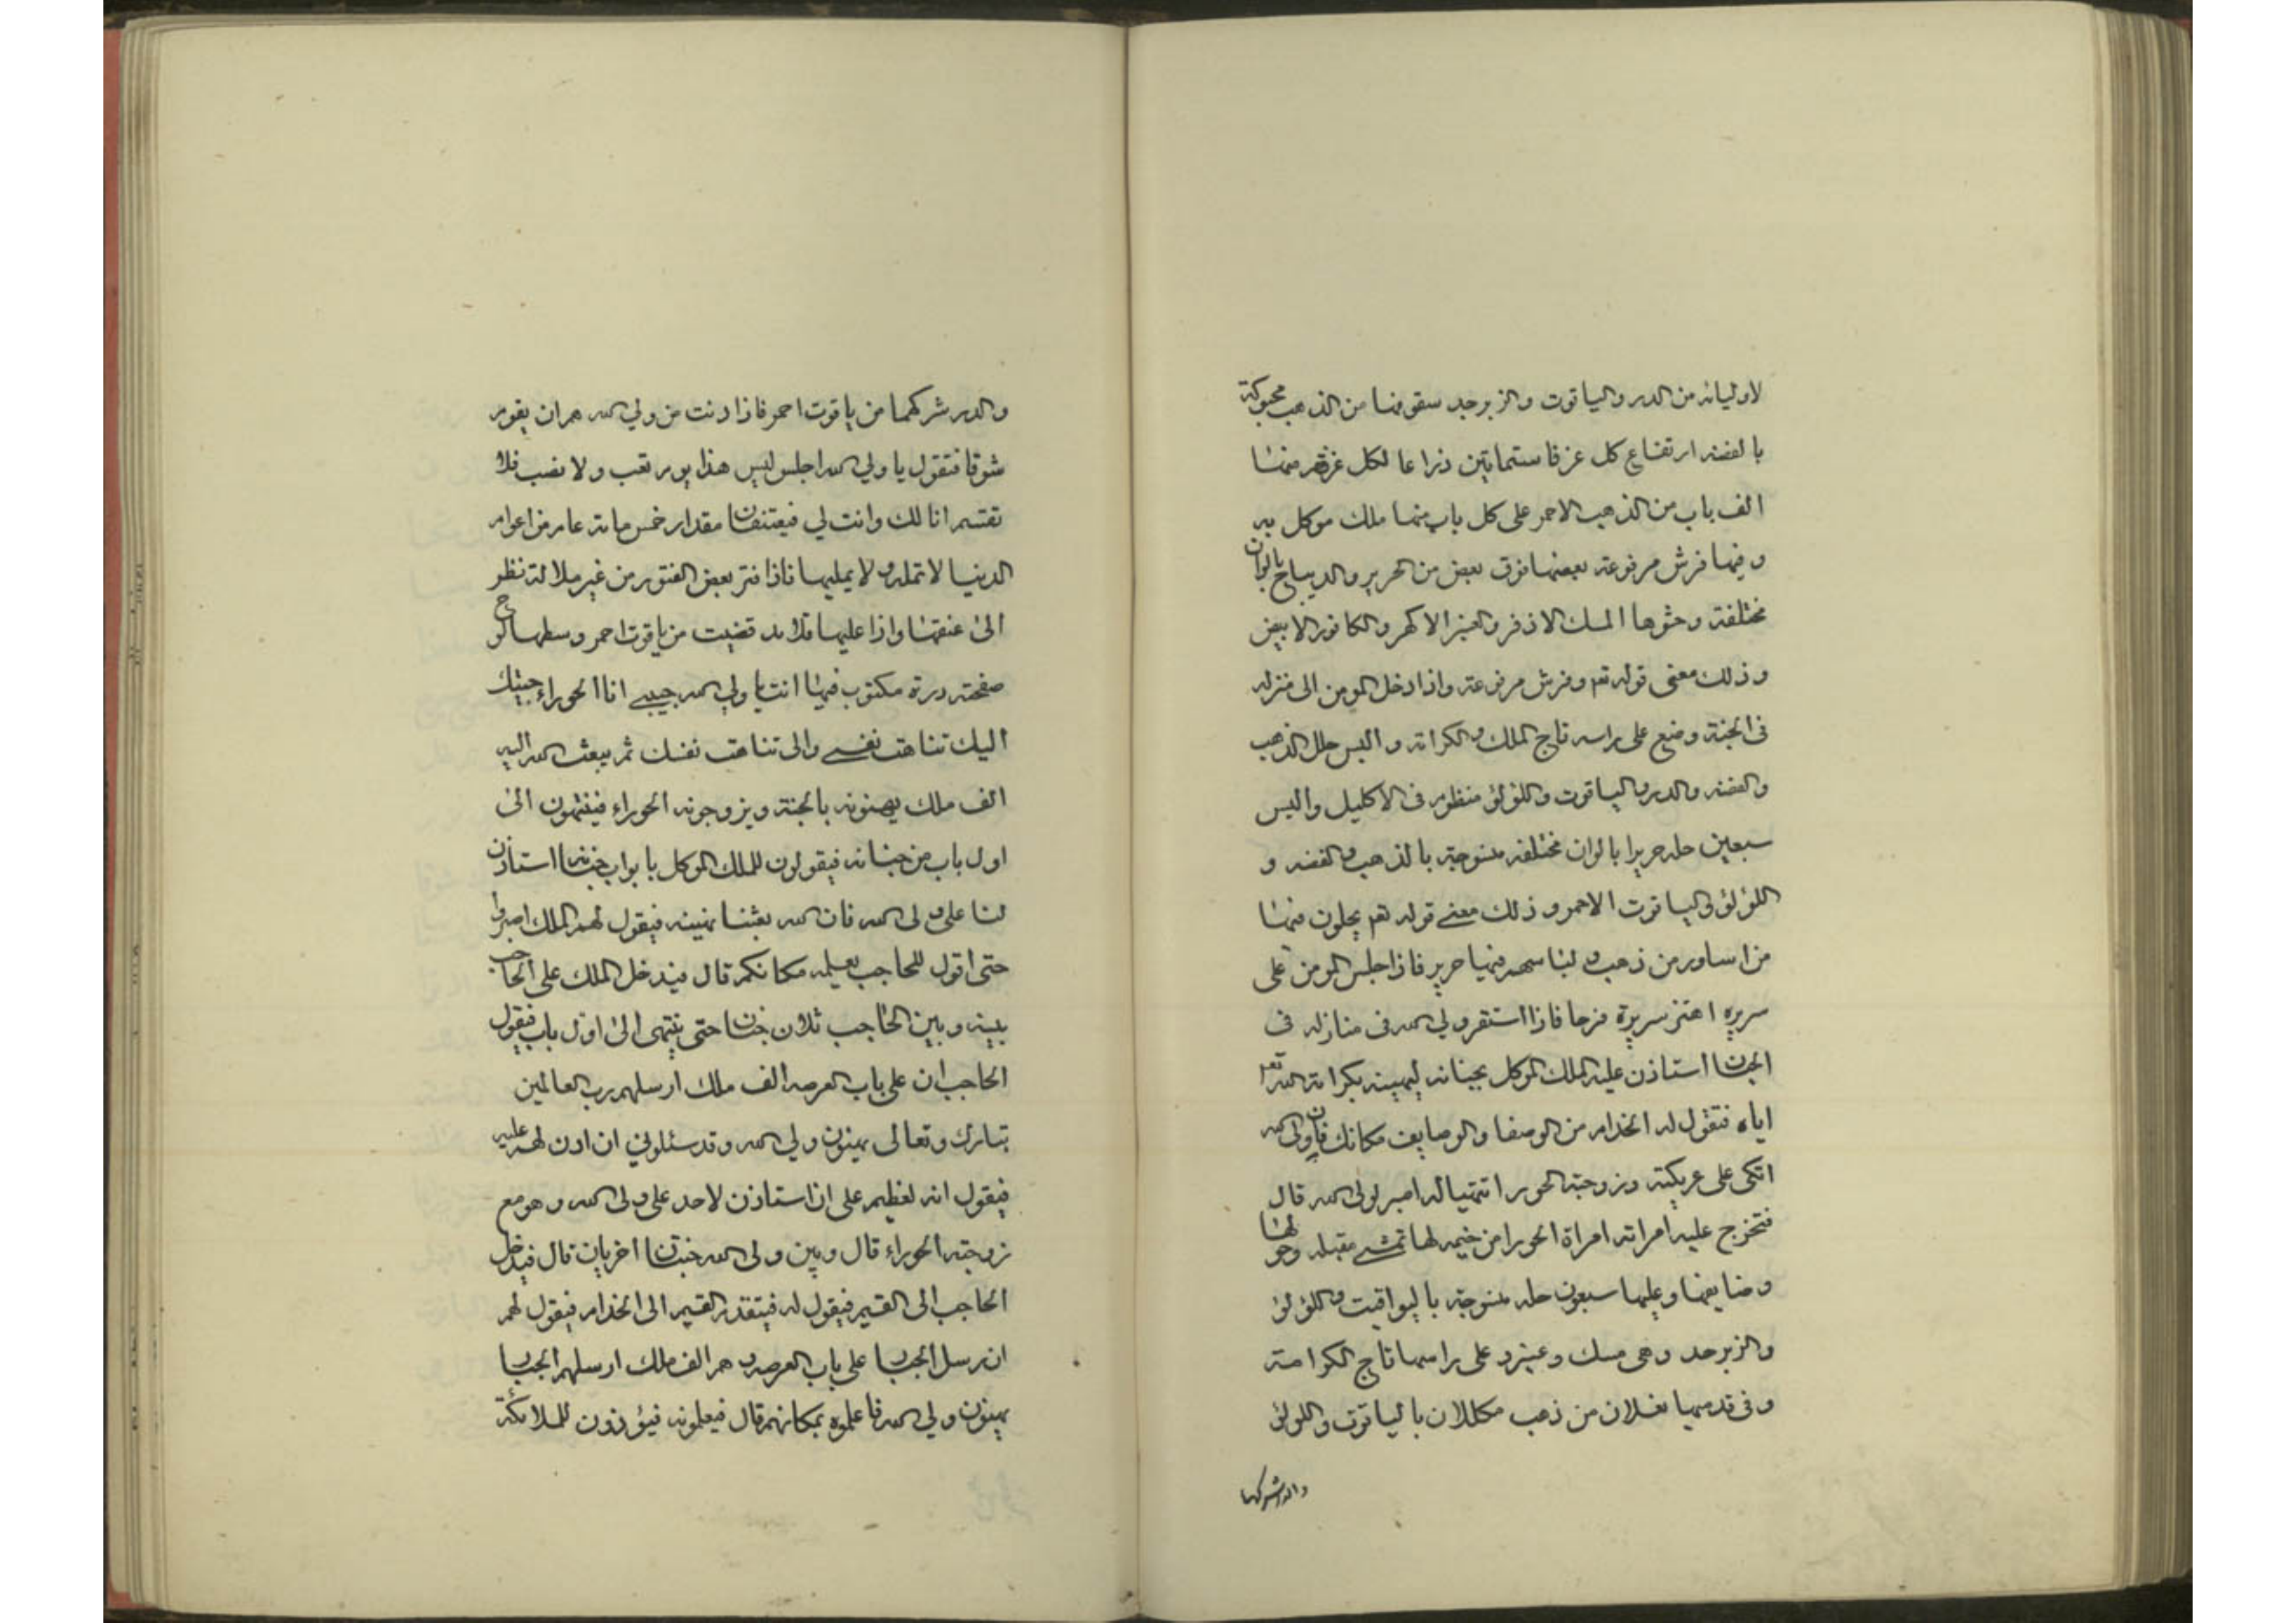 لاوليائه من الدر والياقوت والزبرجد سقوفها من الذهب محبوكة
بالفضه ارتفاع كل غرفا ستمايتين ذراعا لكل غرفه منها
الف باب من الذهب الاحمر على كل باب منها ملك موكل به
وفيها فرش مرفوعة بعضها فوق بعض من الحرير والديباج بالوان
مختلفة وحشوها المسك الاذفر والعنبر الاكهر والكافور الابيض
وذلك معنى قوله تع وفرش مرفوعة واذا دخل المومن الى منزله
فى الجنة وضع على راسه تاج الملك والكرامة والبس حلل الذهب
والفضه والدر والياقوت واللؤلؤ منظوم فى الاكليل والبس
سبعين حله حريرا بالوان مختلفه منسوجة بالذهب والفضه و
اللؤلؤ والياقوت الاحمر وذلك معنى قوله تع يحلون فيها
من اساور من ذهب ولباسهم فيها حرير فاذا جلس المومن على
سريره اهتز سريرة فرحا فاذا استقر ولي الله فى منازله فى
الجنان استاذن عليه الملك الموكل بجنانه ليهينه بكرامة الله تع
اياه فتقول له الخدام من الوصفا والوصايف مكانك فان ولى الله
اتكى على عريكته وزوجته الحورا تتهيا له اصبر لولى الله قال
فتخرج عليه امراته امراة الحورا من خيمه لها تمشى مقبله وحولها
وصايفها وعليها سبعون حله منسوجة باليواقيت واللؤلؤ
والزبرجد وهى مسك وعنبر وعلى راسها تاج الكرامة
وفى قدميها نعلان من ذهب مكللان بالياقوت واللولؤ
والدر شركهما
والدر شركهما من ياقوت احمر فاذا دنت من ولي الله هم ان يقوم
شوقا فتقول يا ولي الله اجلس ليس هذا يوم تعب ولا نصب فلا
تقسم انا لك وانت لي فيعتنقان مقدار خمس ماية عام من اعوام
الدنيا لا تمله ولا يمليها فاذا فتر بعض الفتور من غير ملالة نظر
الى عنقها واذا عليها قلايد قضيب من ياقوت احمر وسطها لوح
صفحته درة مكتوب فيها انت يا ولي الله حبيبى انا الحوراء جبيتك
اليك تناهت نفسى والى تناهت نفسك ثم يبعث الله اليه
الف ملك يهنونه بالجنة ويزوجونه الحوراء فينتهون الى
اول باب من جنانه فيقولون للملك الموكل بابواب جنانه استاذن
لنا على ولى الله فان الله بعثنا نهنينه فيقول لهم الملك اصبروا
حتى اقول للحاجب يعلمه مكانكم قال فيدخل الملك على الحاجب
بينه وبين الحاجب ثلاث جنان حتى ينتهى الى اول باب فيقول
الحاجب ان على باب العرصه الف ملك ارسلهم رب العالمين
تبارك وتعالى يهنون ولي الله وقد سئلوني ان اذن لهم عليه
فيقول انه لعظيم على ان استاذن لاحد على ولى الله وهو مع
زوجته الحوراء قال وبين ولى الله جنتان اخريان قال فيدخل
الحاجب الى القيم فيقول له فيتقدم القيم الى الخدام فيقول لهم
ان رسل الجبار على باب العرصه وهم الف ملك ارسلهم الجبار
يهنون ولي الله فاعلموه بمكانهم قال فيعلمونه فيؤذون للملائكة